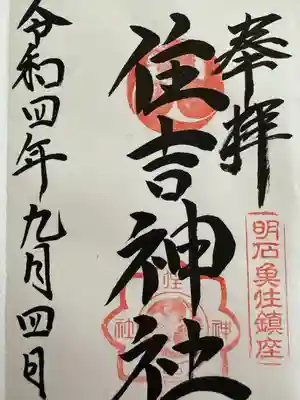 奉拝
明石魚住鎮座
住吉神社
令和四年九月四日